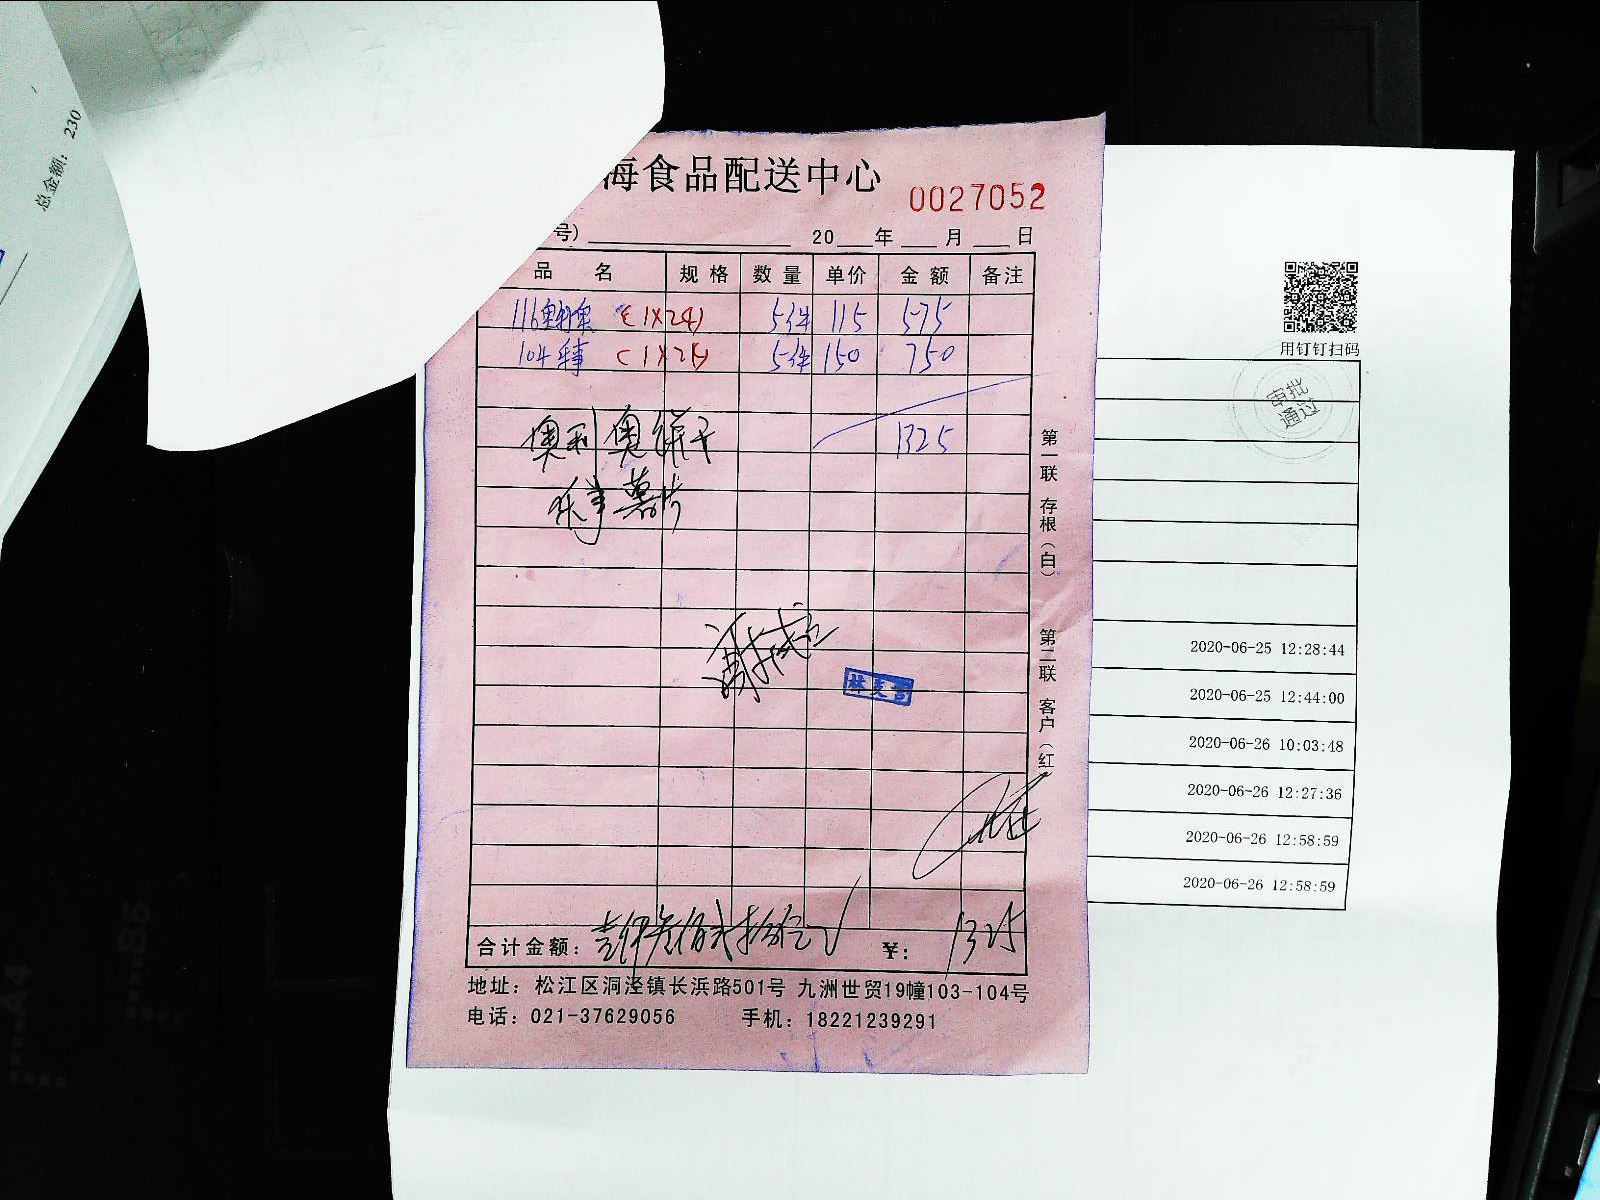 总金额: 230
海食品配送中心
0027052
号) 20 年 月 日
品 名 规格 数量 单价 金额 备注
116 (1X24) 5件 115 575
104 (1X24) 5件 150 750
1325
奥利奥饼干
第一联 存根(白)
第二联 客户(红
合计金额: 壹仟叁佰贰拾伍 ¥: 1325
地址: 松江区洞泾镇长浜路501号 九洲世贸19幢103-104号
电话: 021-37629056 手机: 18221239291
用钉钉扫码
审批
通过
2020-06-25 12:28:44
2020-06-25 12:44:00
2020-06-26 10:03:48
2020-06-26 12:27:36
2020-06-26 12:58:59
2020-06-26 12:58:59